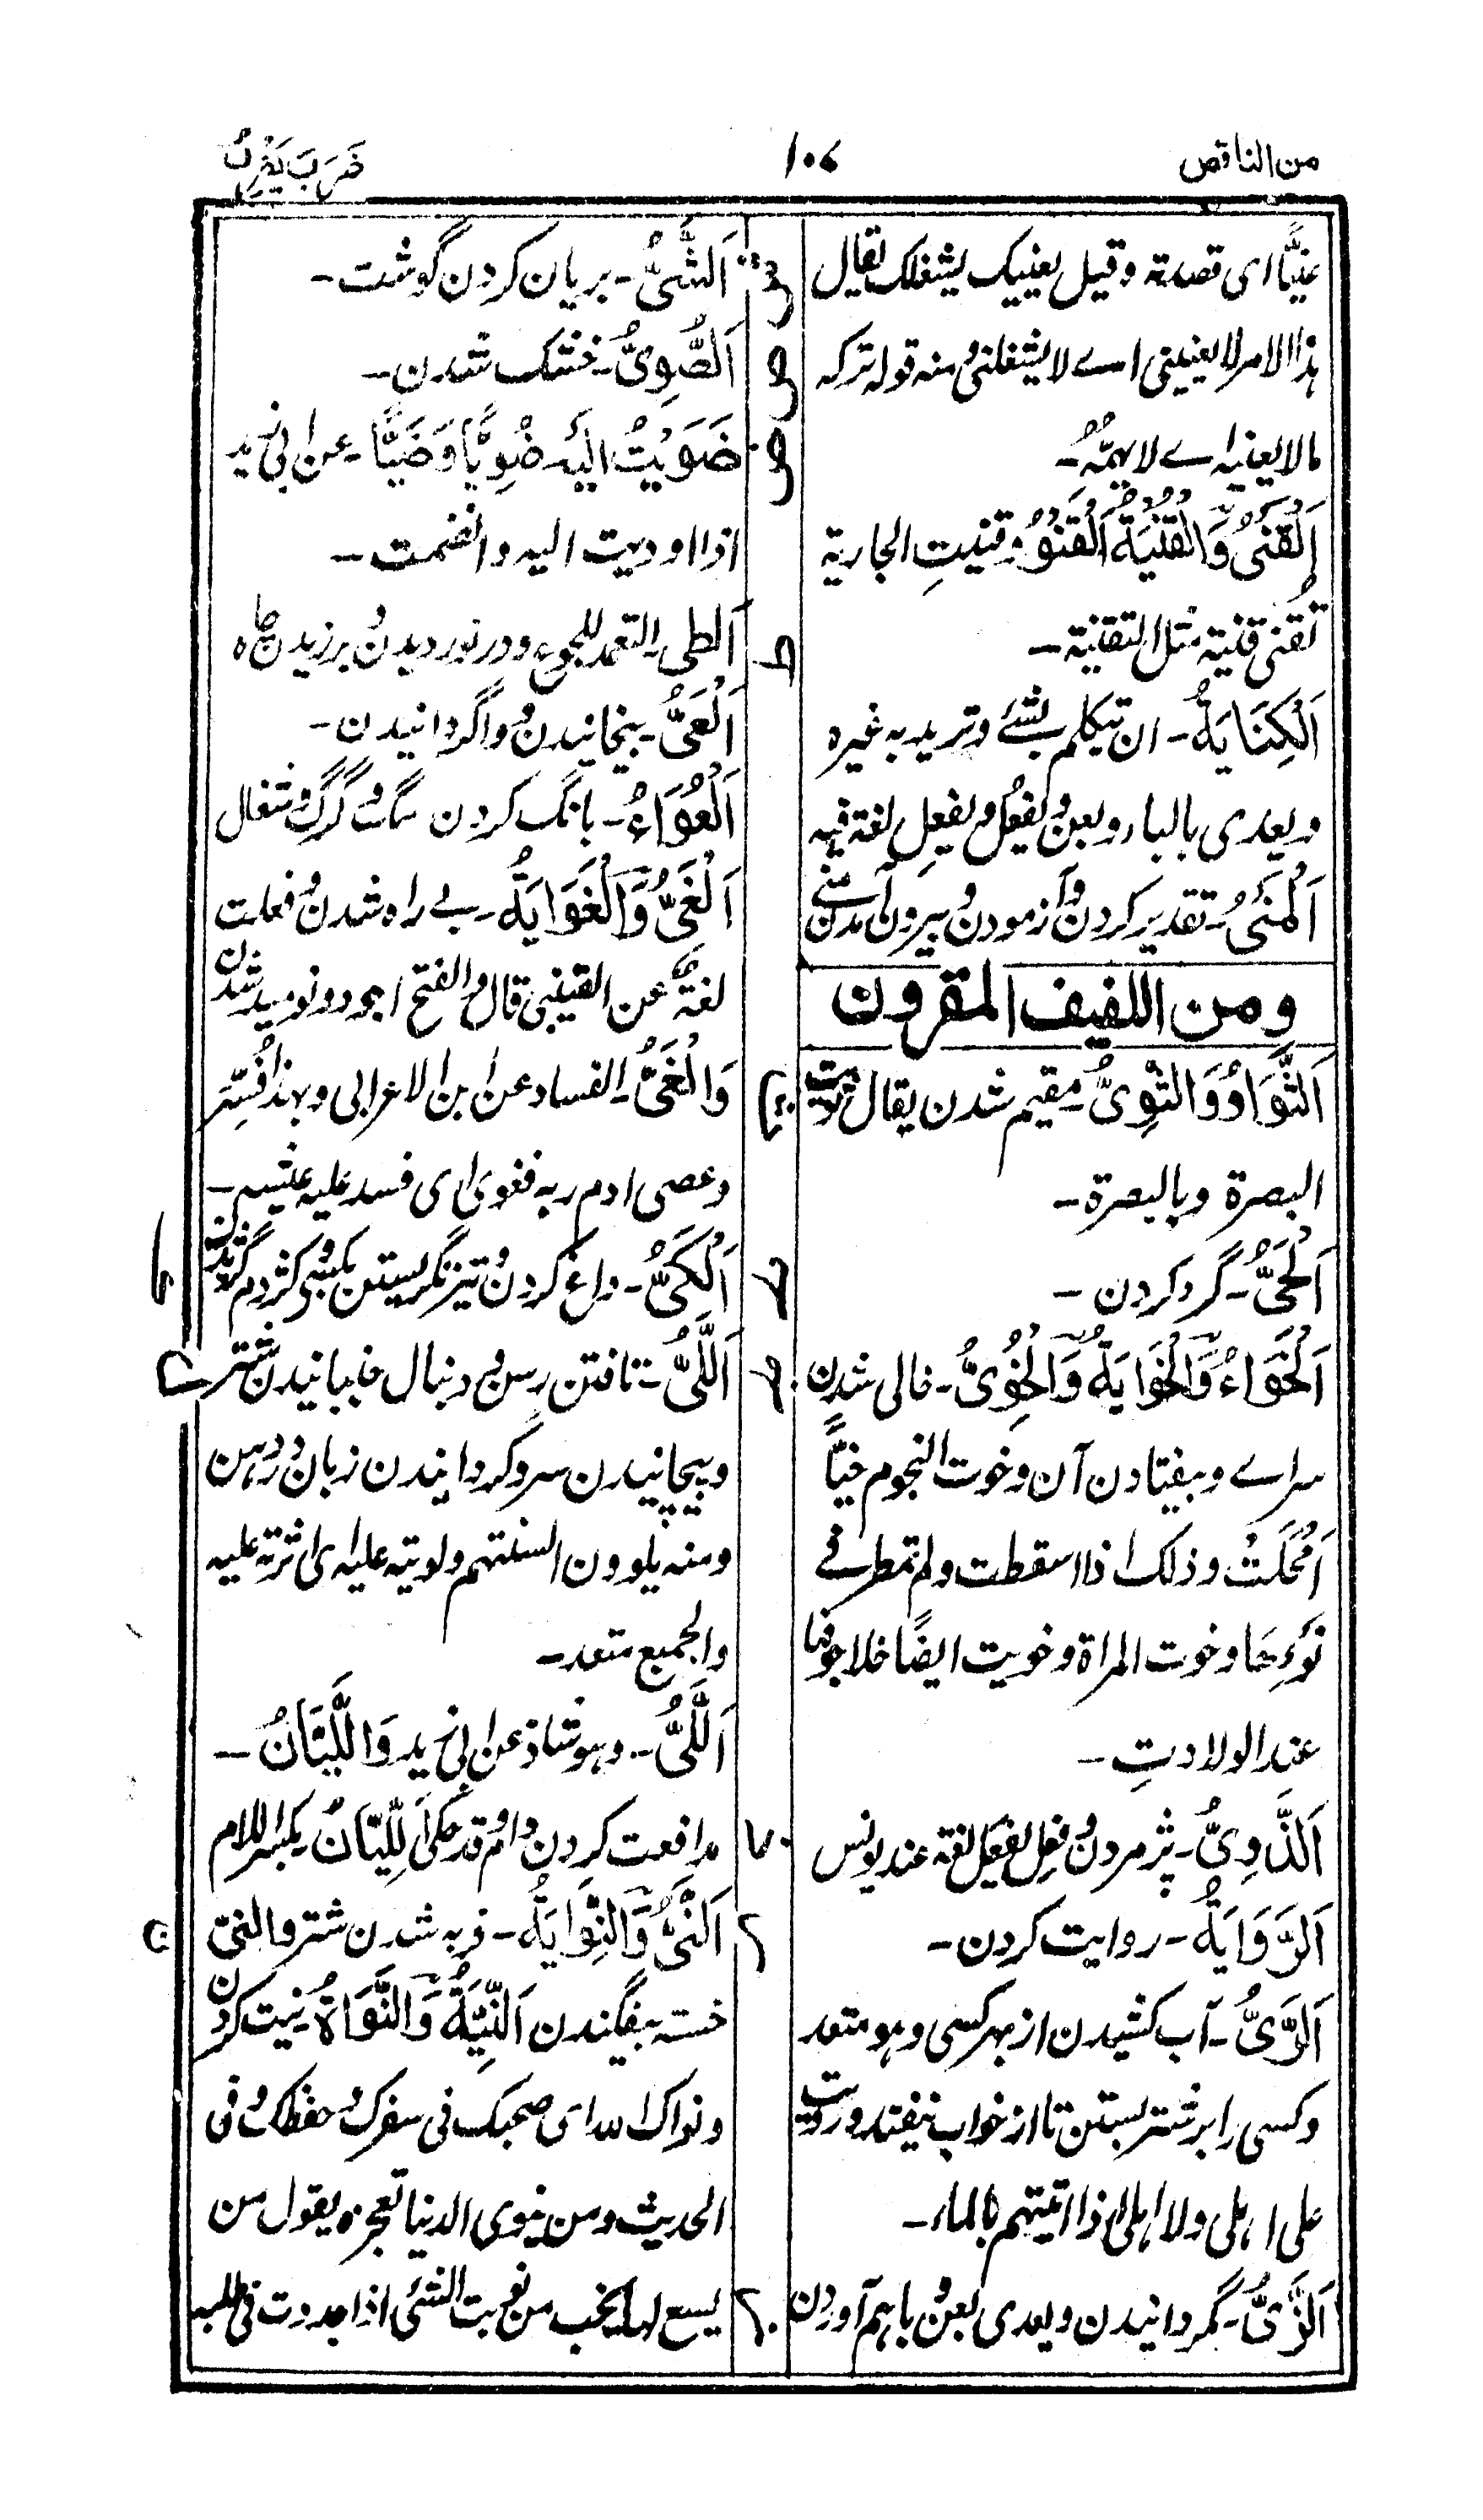 من الناقص
۱۰۷
ضَرَبَ يَضْرِبُ
عَنْيًا اى قصدته وقيل يعنيك يشغلك يقال
هذا الامر لا يعنينى اے لا يشغلنى ومنه قوله تركه
مالا يعنيه اے لا يهمّه۔
اَلْقَنْىُ وَالْقُنْيَةُ اَلْقَنْوُ وقنيتِ الجارية
تقنى قنية مثل التقنية۔
اَلْكِنَايَةُ۔ ان تتكلم بشئ وتريد به غيره
ويعدى بالباء وبعن ويفعُل ويفعِل لغة فيه
اَلْمَنْىُ۔ تقدير كردن وآزمودن وبيرون آمدن منى
ومن اللفيف المقرون
اَلثَّوَاءُ وَالثُّوِىُّ۔ مقيم شدن يقال ثويت
البصرة وبالبصرة۔
اَلْحَىُّ۔ گرد كردن۔
اَلْخَوَاءُ وَالْخَوَايَةُ وَالْخُوِىُّ۔ خالى شدن
سراے وبيفتادن آن وخوت النجوم خيًّا
اَمْحَلَتْ وذلك اذا سقطت ولم تمطر فے
نَوْءِهَا وخوت المراة وخويت ايضًا خلا جوفها
عند الولادتِ۔
اَلذُّوِىُّ۔ پژمردن وفعِل يفعَل لغة عند يونس
اَلرِّوَايَةُ۔ روايت كردن۔
اَلرَّىُّ۔ آب كشيدن از بهر كسى وهو متعد
وكسى را بر شتر بستن تا از خواب نيفتد ورويت
على اهلى ولاهلى اذا اتيتهم بالماء۔
اَلزَّىُّ۔ گردانيدن ويعدى بعن وباهم آوردن
اَلشَّىُّ۔ بريان كردن گوشت۔
اَلصُّوِىُّ۔ خشك شدن۔
ضَوَيْتُ اليهِ ضُوِيًّا وَضَيًّا۔ عن ابى زيد
اذا اوديت اليه وانضممت۔
اَلطى۔ التعمد للجوع ودر نورديدن وبرزيدن چاه
اَلْعَىُّ۔ پيچانيدن وواگردانيدن۔
اَلْعُوَاءُ۔ بانگ كردن سگ وگرگ وشغال
اَلْغَىُّ وَالْغَوَايَةُ۔ بے راه شدن وفعلت
لغةٌ عن القتيبى قال والفتح اجود ونوميد شدن
وَالْغَىُّ۔ الفساد عن ابن الاعرابى وبهذا فُسِّر
وعصى ادم ربه فغوى اى فسد عليه عيشه۔
اَلْكَىُّ۔ داغ كردن وتيز نگريستن بكسى وكژدم گزيدن
اَللَّىُّ۔ تافتن رسن ودنبال جنبانيدن شتر
وپيچانيدن سر وگردانيدن زبان در دهن
ومنه يلوون السنتهم ولويته عليه اى اثرته عليه
والجميع متعد۔
اَللَّىُّ۔ وهو شاذ عن ابى زيد وَاللَّيَّانُ۔
مدافعت كردن وام وقد حكى اَللِّيَّانُ بكسر اللام
اَلنَّىُّ وَالنِّوَايَةُ۔ فربه شدن شتر والنى
خسته بيفگندن اَلنِّيَّةُ وَالنَّوَاةُ نيت كردن
ونواك الله اى صحبك فى سفرك وحفظك وفى
الحديث ومن ينوى الدنيا تعجزه يقول من
يسع لها يخب من نويت الشئ اذا جددت فى طلبه